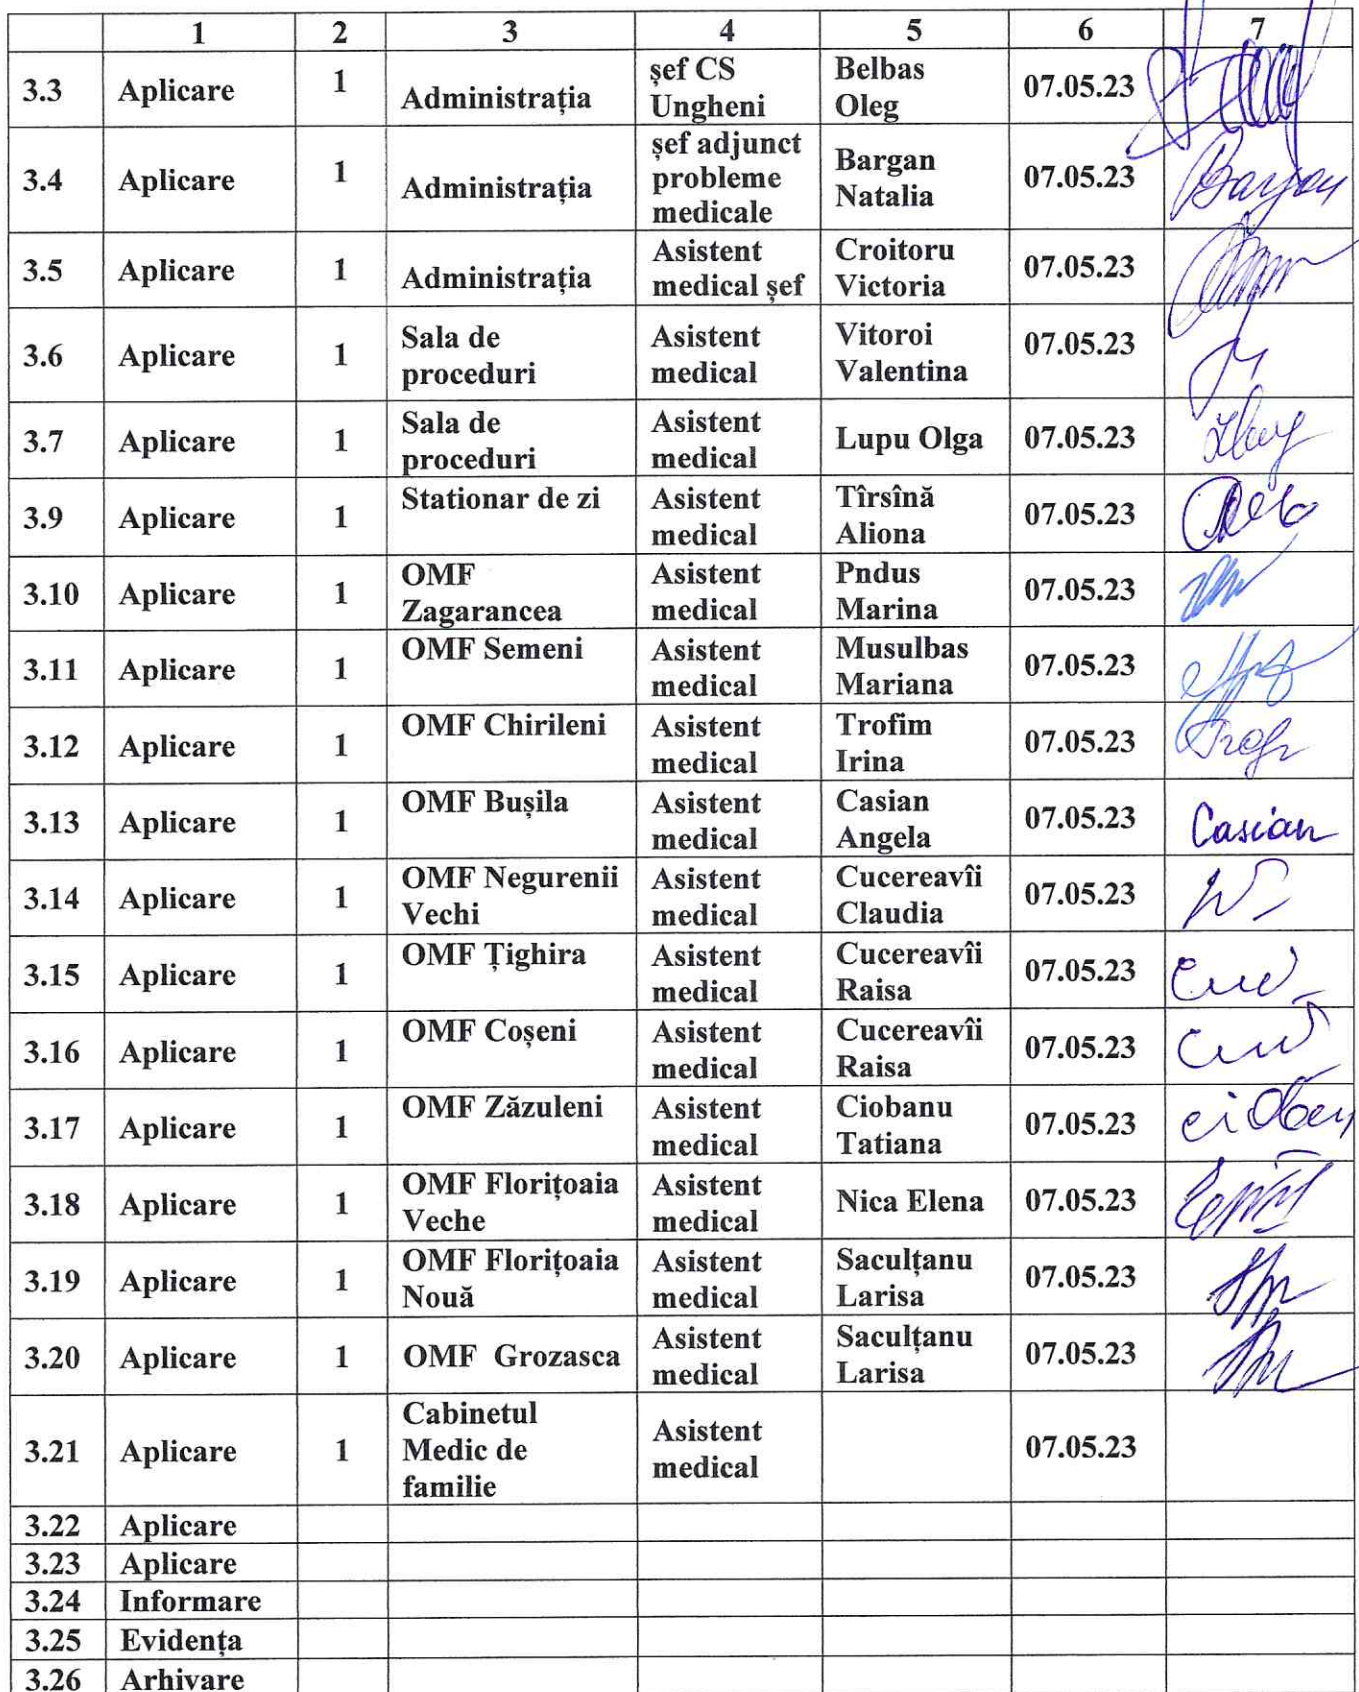 1 2 3 4 5 6 7
3.3 Aplicare 1 Administrația șef CS Ungheni Belbas Oleg 07.05.23
3.4 Aplicare 1 Administrația șef adjunct probleme medicale Bargan Natalia 07.05.23 Bargan
3.5 Aplicare 1 Administrația Asistent medical șef Croitoru Victoria 07.05.23
3.6 Aplicare 1 Sala de proceduri Asistent medical Vitoroi Valentina 07.05.23
3.7 Aplicare 1 Sala de proceduri Asistent medical Lupu Olga 07.05.23
3.9 Aplicare 1 Stationar de zi Asistent medical Tîrsînă Aliona 07.05.23
3.10 Aplicare 1 OMF Zagarancea Asistent medical Pndus Marina 07.05.23
3.11 Aplicare 1 OMF Semeni Asistent medical Musulbas Mariana 07.05.23
3.12 Aplicare 1 OMF Chirileni Asistent medical Trofim Irina 07.05.23
3.13 Aplicare 1 OMF Bușila Asistent medical Casian Angela 07.05.23 Casian
3.14 Aplicare 1 OMF Negurenii Vechi Asistent medical Cucereavîi Claudia 07.05.23
3.15 Aplicare 1 OMF Țighira Asistent medical Cucereavîi Raisa 07.05.23
3.16 Aplicare 1 OMF Coșeni Asistent medical Cucereavîi Raisa 07.05.23
3.17 Aplicare 1 OMF Zăzuleni Asistent medical Ciobanu Tatiana 07.05.23
3.18 Aplicare 1 OMF Florițoaia Veche Asistent medical Nica Elena 07.05.23
3.19 Aplicare 1 OMF Florițoaia Nouă Asistent medical Saculțanu Larisa 07.05.23
3.20 Aplicare 1 OMF Grozasca Asistent medical Saculțanu Larisa 07.05.23
3.21 Aplicare 1 Cabinetul Medic de familie Asistent medical 07.05.23
3.22 Aplicare
3.23 Aplicare
3.24 Informare
3.25 Evidența
3.26 Arhivare